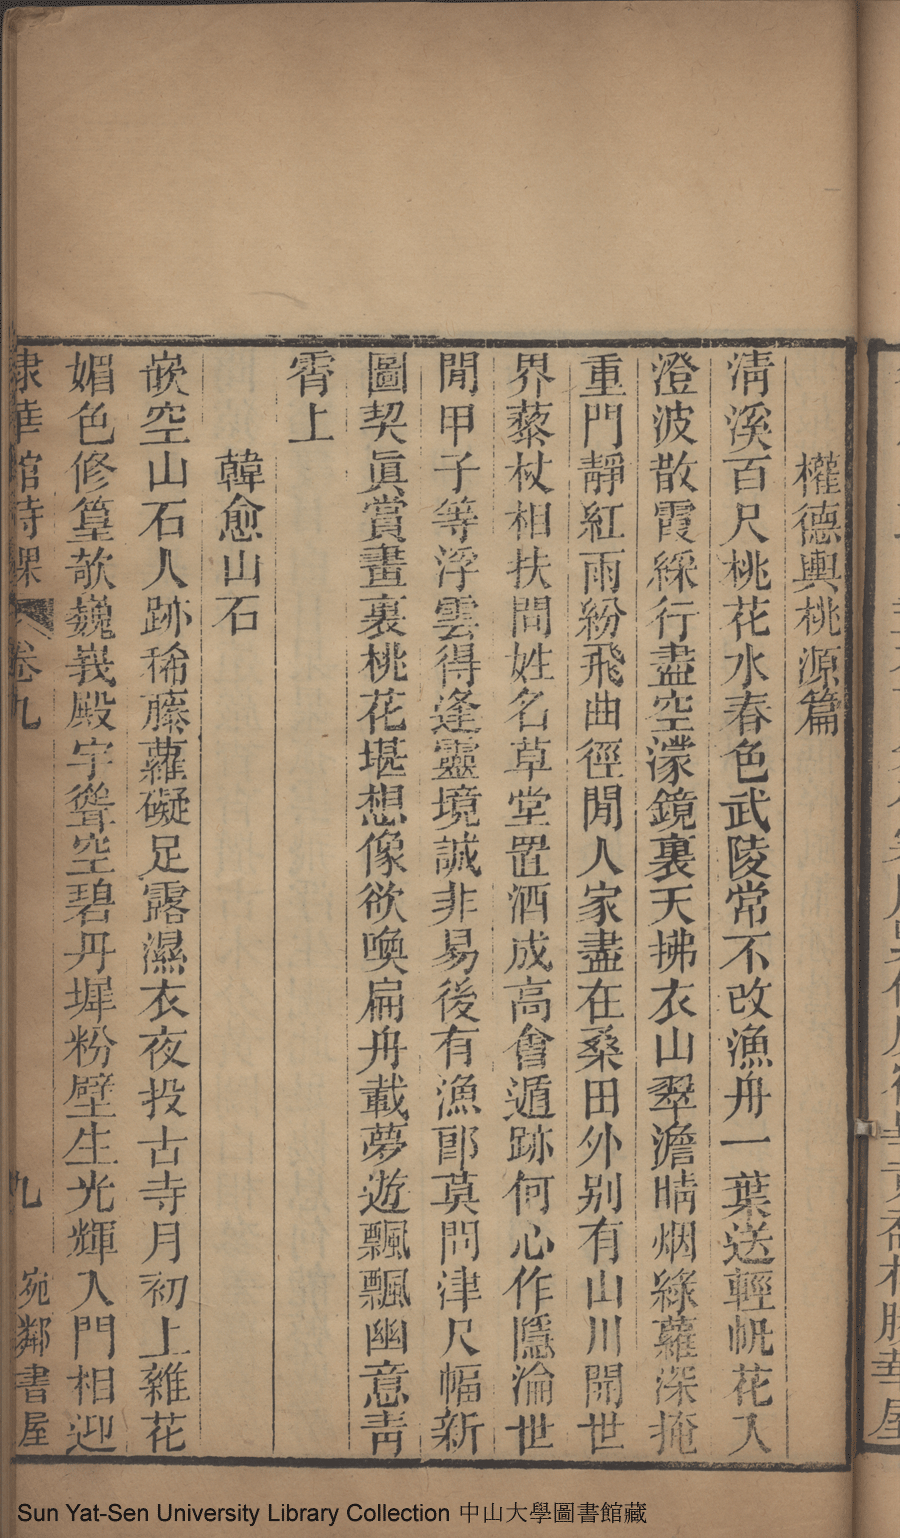 權德輿桃源篇
清溪百尺桃花水春色武陵常不改漁舟一葉送輕帆花入
澄波散霞綵行盡空濛鏡裏天拂衣山翠澹晴烟綠蘿深掩
重門靜紅雨紛飛曲徑閒人家盡在桑田外别有山川開世
界藜杖相扶問姓名草堂置酒成高會遁跡何心作隱淪世
閒甲子等浮雲得逢靈境誠非易後有漁郎莫問津尺幅新
圖契眞賞畫裏桃花堪想像欲喚扁舟載夢遊飄飄幽意靑
霄上
韓愈山石
嵌空山石人跡稀藤蘿礙足露濕衣夜投古寺月初上雜花
媚色修篁欹巍峩殿宇聳空碧丹墀粉壁生光輝入門相迎
棣華館詩課 卷九 九 宛鄰書屋
Sun Yat-Sen University Library Collection 中山大學圖書館藏